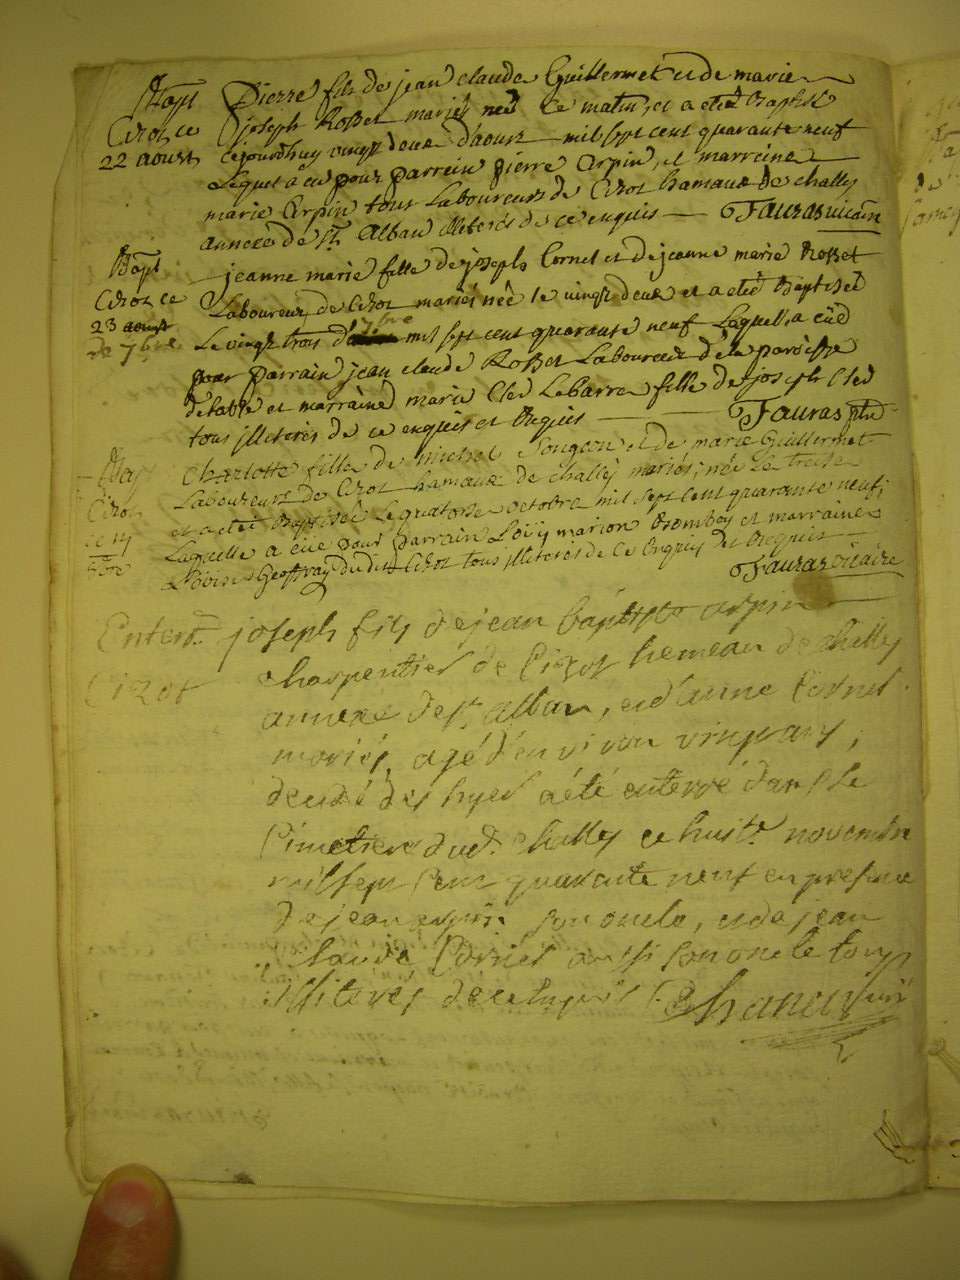 Bapt Pierre fils de jean claude Guillermet et de marie
Cizot ce joseph Rosset mariés né ce matin, et a eté Baptisé
22 aoust cejourdhuy vingt deux d'aoust mil sept cent quarante neuf
Lequel a eu pour parrein pierre Arpin, et marreine
marie Arpin tous Laboureurs de Cizot hamaux de challey
annexe de st Alban illiterés de ce enquis Fauras vicaire
Bapt jeanne marie fille de joseph Cornet et de jeanne marie Rosset
Cizot ce Laboureur de Cizot mariés née le vingt deux et a eté Baptiseé
23 aoust
de 7bre Le vingt trois 7bre mil sept cent quarante neuf Laquelle a eüe
pour parrain jean claude Rosset Laboureur de la paroisse
et marraine marie fille de joseph
tous illiterés de ce enquis et Requis Fauras
Charlotte fille de michel et de marie Guillermet
Cizot Laboureurs de Cizot hamaux de challey mariés, née Le treize
et a eté Baptiseé Le quatorse octobre mil sept cent quarante neuf,
Laquelle a eüe pour parrain Loüis marion et marraine
Loüise Geoffray dudit Cizot tous illiterés de Ce Enquis et Requis
Fauras vicaire
Enterrt joseph fils de jean baptiste arpin
Cizot charpentier de Cizot hemeau de challey
annexe de st alban, et d'anne Cornet
mariés, agé d'environ vingt ans,
decedé des hyer a été enterré dans le
Cimetiere dud. Challey ce huite novembre
mil sept cent quarante neuf en presence
de jean arpin son oncle, et de jean
claude Cornet aussi son oncle tous
illiterés de ce enquis